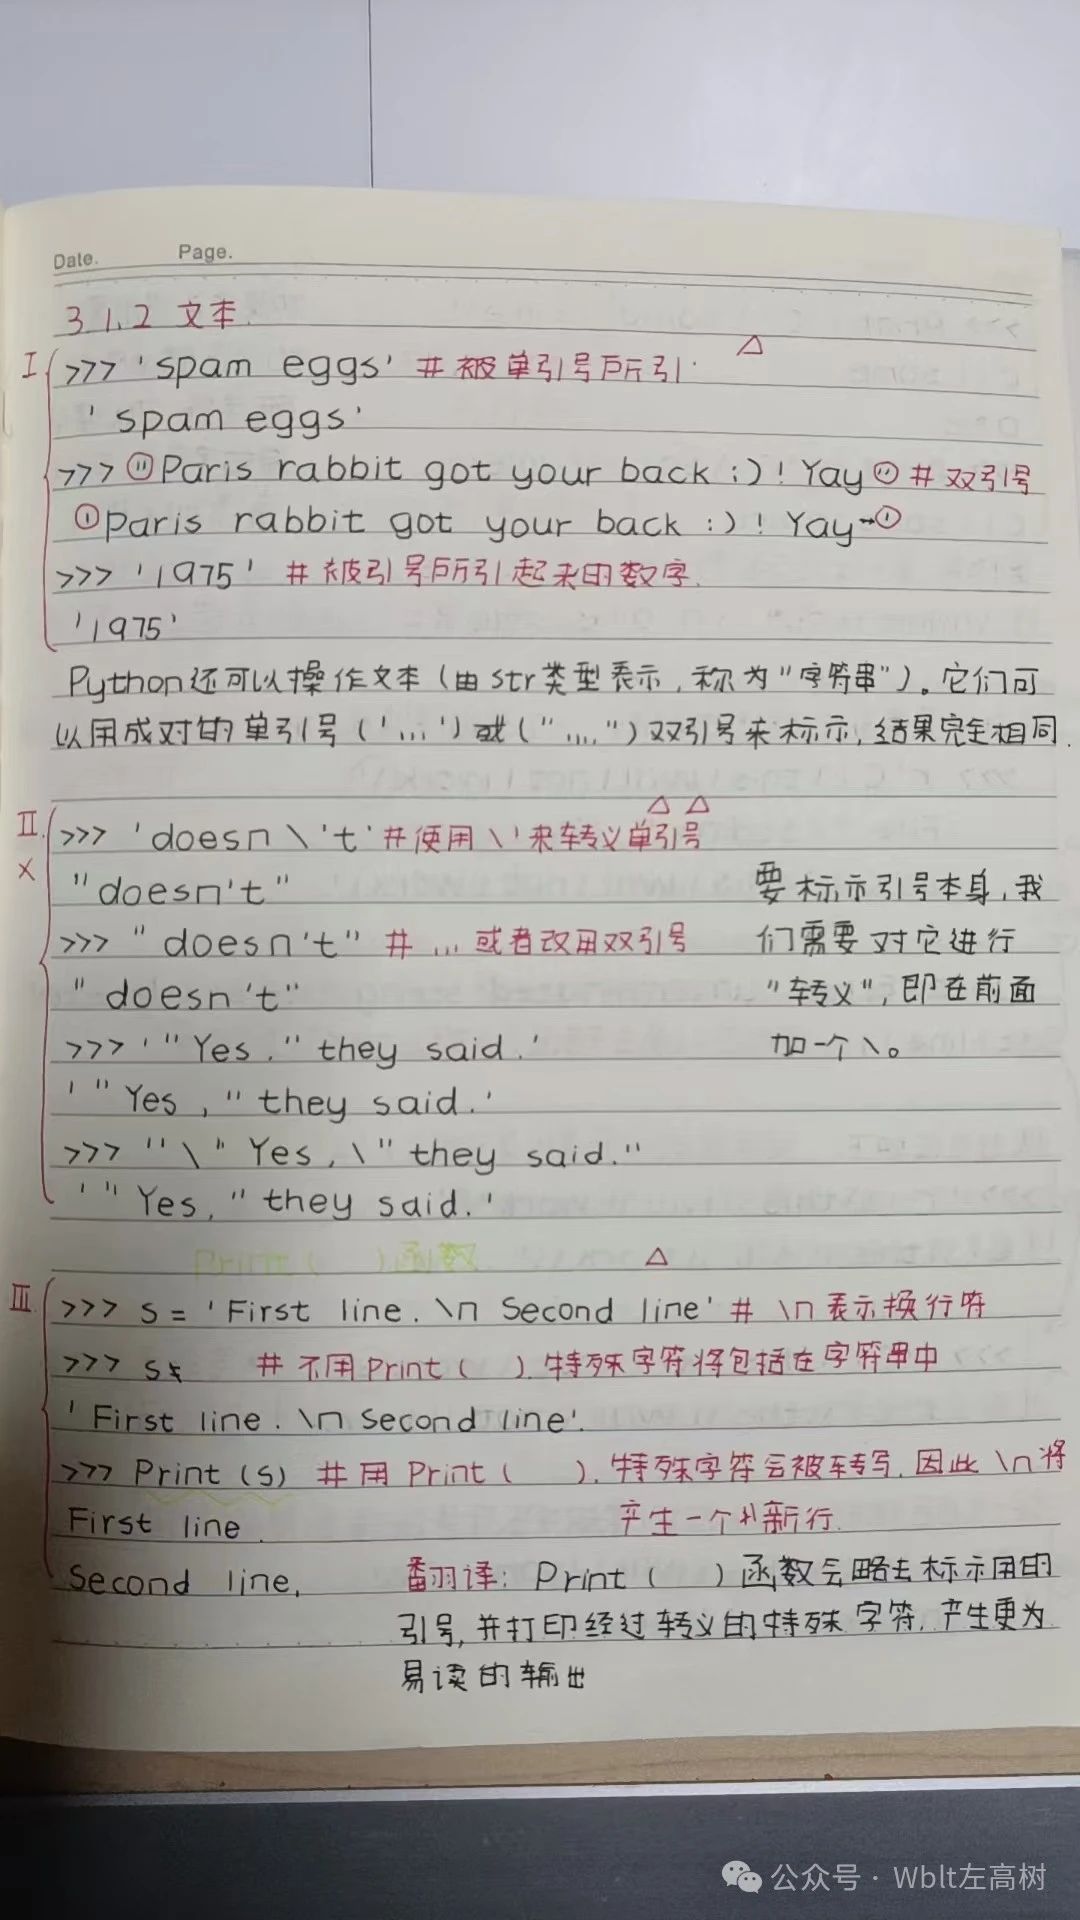 Date. Page.
3.1.2 文本.
I >>> 'spam eggs' # 被单引号所引.
'spam eggs'
>>> "Paris rabbit got your back :)! Yay" # 双引号
'Paris rabbit got your back :)! Yay'
>>> '1975' # 被引号所引起来的数字.
'1975'
Python还可以操作文本（由str类型表示，称为"字符串"）。它们可
以用成对的单引号（'...'）或（"...."）双引号来标示，结果完全相同.
II. >>> 'doesn\'t' #使用\'来转义单引号
× "doesn't" 要标示引号本身，我
>>> "doesn't" # ... 或者改用双引号 们需要对它进行
"doesn't" "转义"，即在前面
>>> '"Yes," they said.' 加一个\。
'"Yes," they said.'
>>> "\"Yes,\" they said."
'"Yes," they said.'
Print( )函数
III. >>> s = 'First line.\n Second line' # \n表示换行符
>>> s # 不用Print( ).特殊字符将包括在字符串中
'First line.\n Second line'.
>>> Print(s) # 用Print( ).特殊字符会被转写.因此\n将
First line. 产生一个新行.
Second line. 翻译：Print( )函数会略去标示用的
引号,并打印经过转义的特殊字符,产生更为
易读的输出
公众号 · Wblt左高树